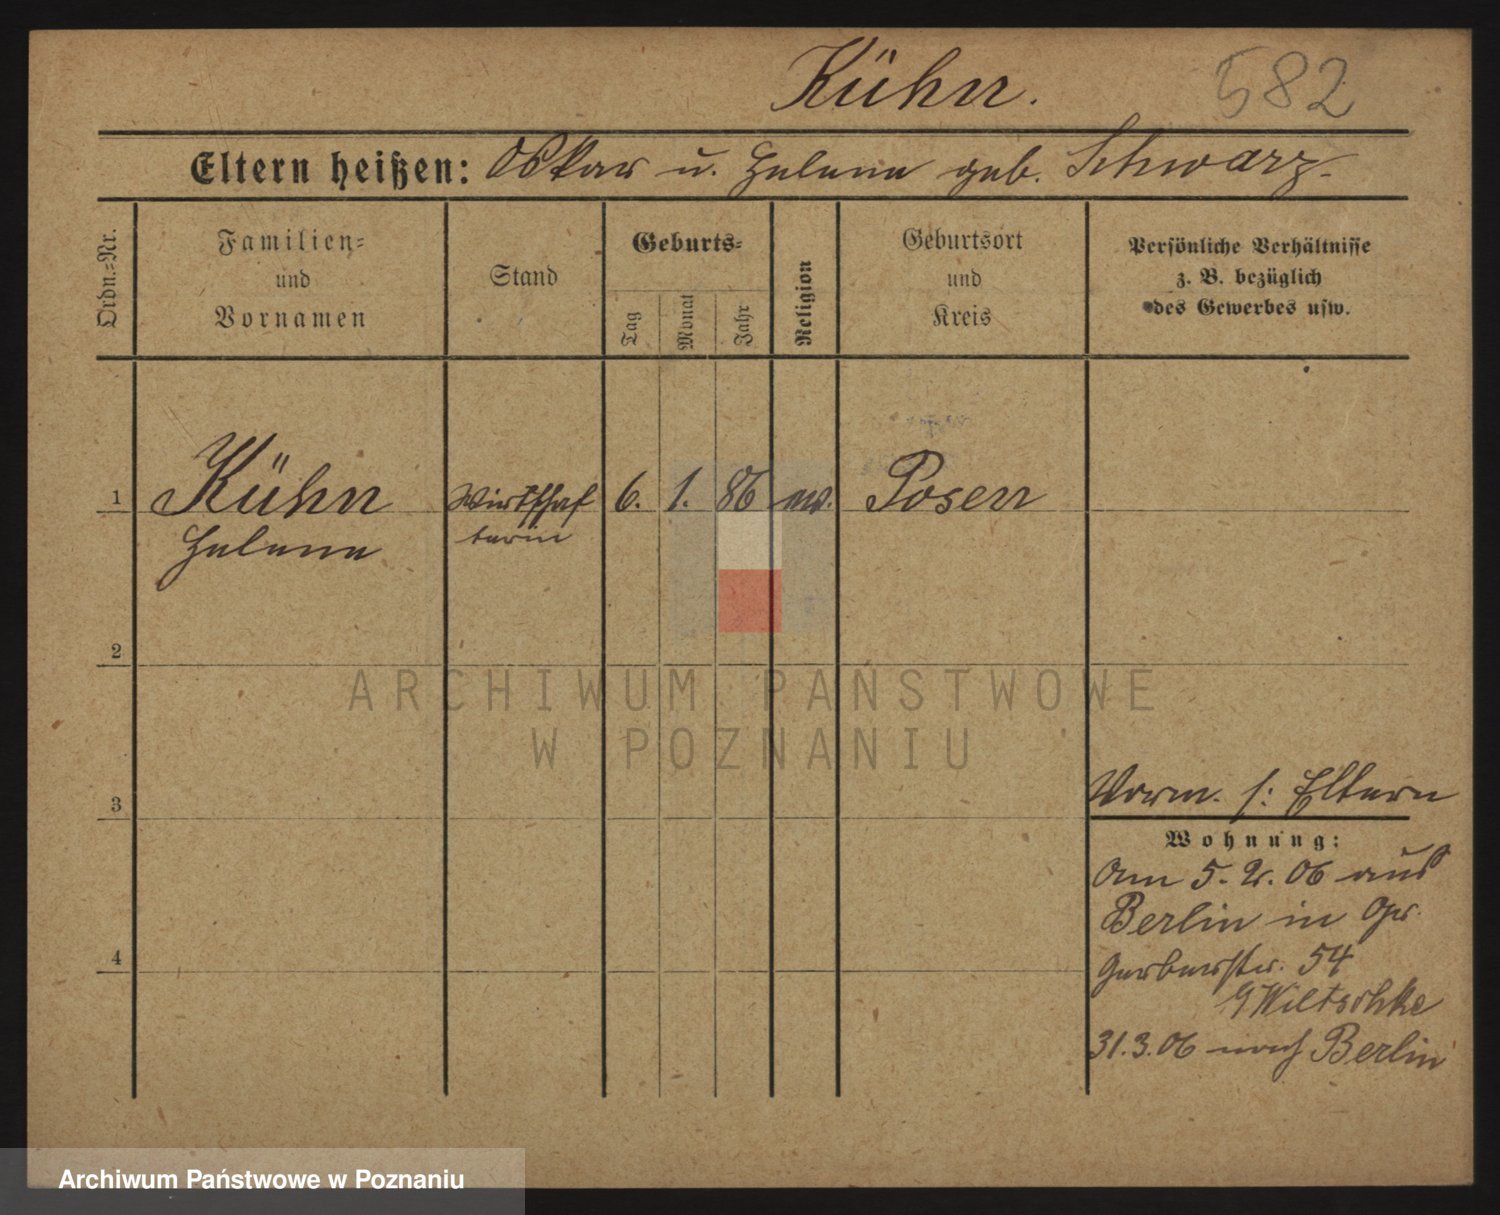 Kühn. 582
Eltern heißen: Oskar u. Helene geb. Schwarz.
Ordn.=Nr.
Familien=
und
Vornamen
Stand
Geburts=
Tag
Monat
Jahr
Religion
Geburtsort
und
Kreis
Persönliche Verhältnisse
z. B. bezüglich
des Gewerbes usw.
1 Kühn Wirtschaf 6. 1. 86 Posen
Helene terin
2
3
4
ARCHIWUM PAŃSTWOWE
W POZNANIU
Vorm. s: Eltern
Wohnung:
Am 5. 2. 06 aus
Berlin in Gr.
Gerberstr. 54
Wiltschke
31.3.06 nach Berlin
Archiwum Państwowe w Poznaniu